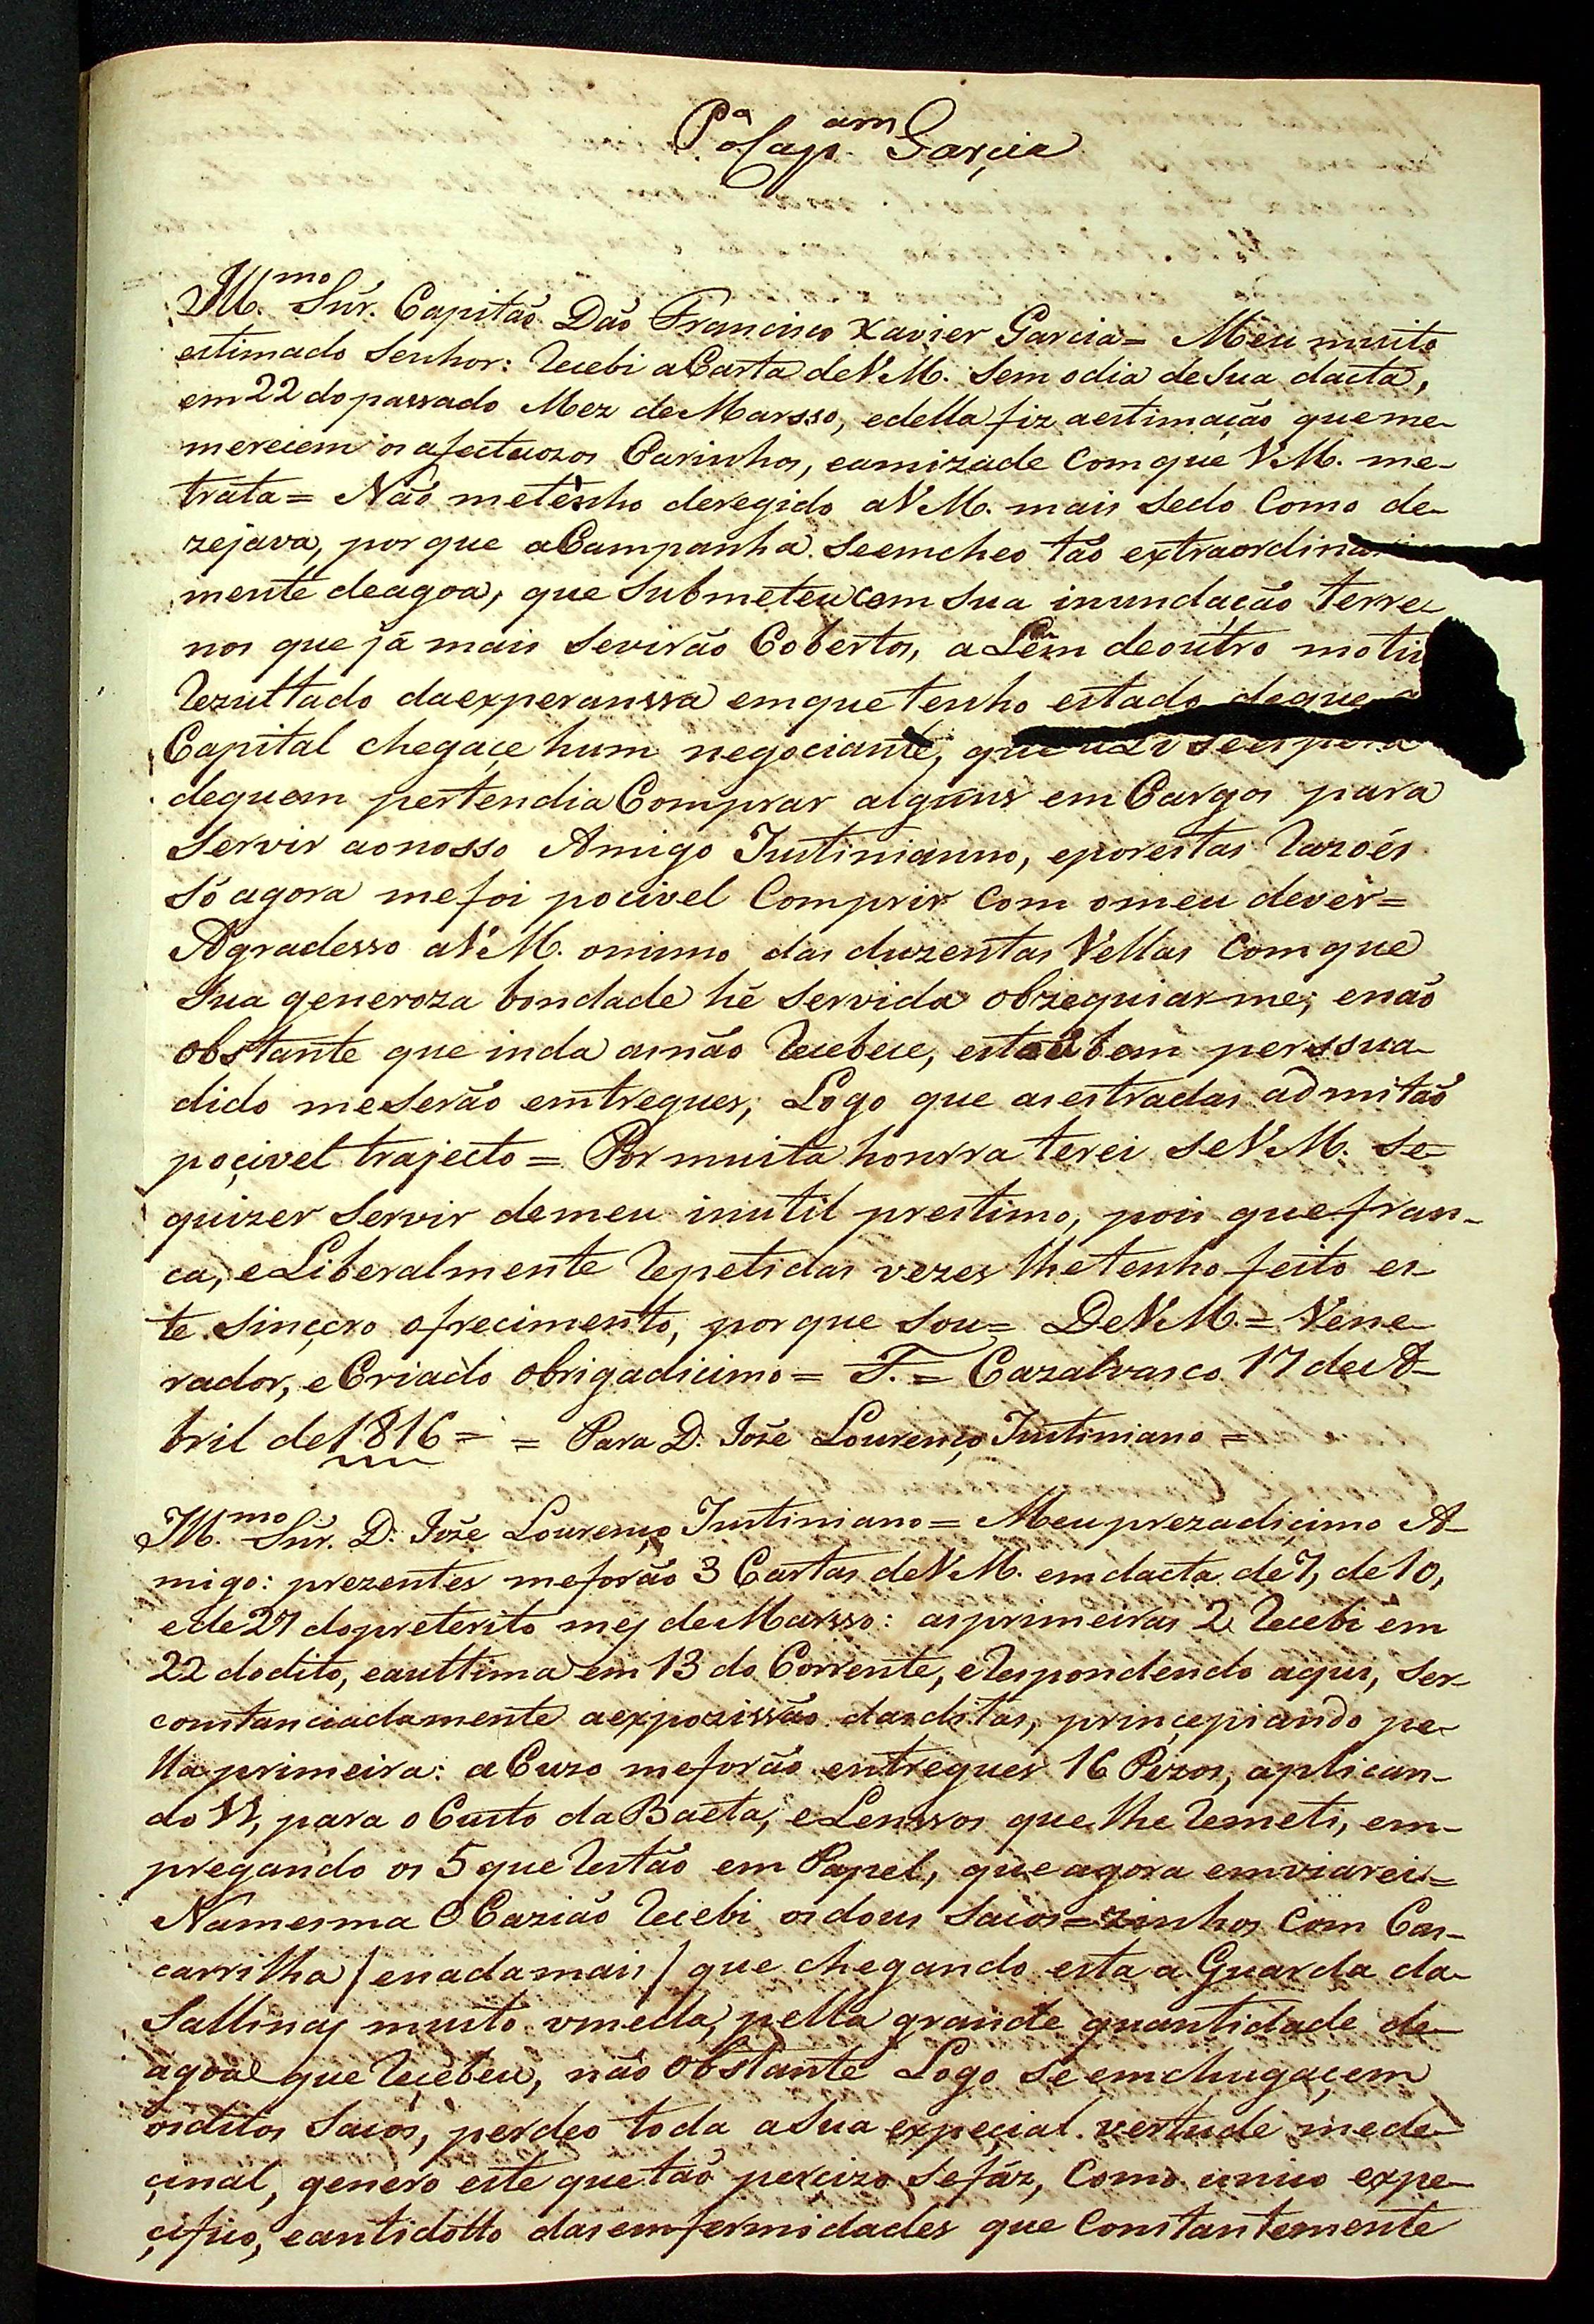 Pª o Cap.am Garçia
Ill.mo Snr. Capitaõ Daõ Francisco Xavier Garcia= Meu muito
estimado Senhor: Recebi aCarta deVM. Sem odia deSua dacta,
em 22 dopassado Mez deMarsso, edella fiz aestimação queme-
mereiem os afectuozos Carinhos, eamizade Comque VM. me-
trata= Naõ metenho deregido aVM. mais Sedo Como de-
zejava, porque aCampanha Seemcheo taõ extraordina
mente deagoa, que Submeteu com Sua inundação terre-
nos que já mais Sevirão Cobertos, aLem deoutro moti
Rezultado daexperanssa emquetenho estado deque a
Capital chegaçe hum negociante, que
dequem pertendia Comprar alguns emCargos para
Servir aonosso Amigo Justinianno, eporestas Razoẽs
Só agora mefoi pocivel Comprir Com omeu dever=
Agradesso aVM. onimo das duzentas Vellas Comque
Sua generoza bondade hé Servida obzequiar-me; enaõ
obstante que inda asnão Recebece, estou bem perssua-
dido meSerão emtregues, Logo que asestradas admitaõ
poçivel trajecto= Por muita honrra terei SeVM. Se-
quizer Servir demeu inutil prestimo, pois quefran-
ca, eLiberalmente Repetidas vezes lhetenho feito es-
te Sinçero ofrecimento, porque Sou= DeVM.= Vene-
rador, eCriado obrigadicimo= F.= Cazalvasco 17 deA-
bril de1816= = Para D. Joze Lourenço Justiniano=
Ill.mo Snr. D. Joze Lourenço Justiniano= Meuprezadiçimo A-
migo: prezentes meforão 3 Cartas deVM. emdacta de7, de10,
ede27 dopreterito mes deMarsso: asprimeiras 2 Recebi em
22 dodito, eaulttima em 13 do Corrente, eRespondendo aqui, Ser-
constanciadamente aexpozissão dasditas, prinçepiando pe-
lla primeira: aCuzo meforão entregues 16 Pezos, aplican-
do 11, para o Custo daBaeta, eLenssos que lhe Remeti, em-
pregando os 5 que Restão em Papel, queagora emviarei=
Namesma OCazião Recebi osdous Sacos=zinhos Com Cas-
carrilha (enadamais) que chegando esta a Guarda da-
Sallinas muito vmeda, pella grande quantidade de-
agoa que Reçebeu, naõ Obstante Logo Seemchugaçem
osditos Sacos, perdeo toda aSua expeçial vertude mede-
çinal, genero este quetaõ perçizo Sefáz, Como unico expe-
çifico, eantidotto dasemfermidades que Constantemente